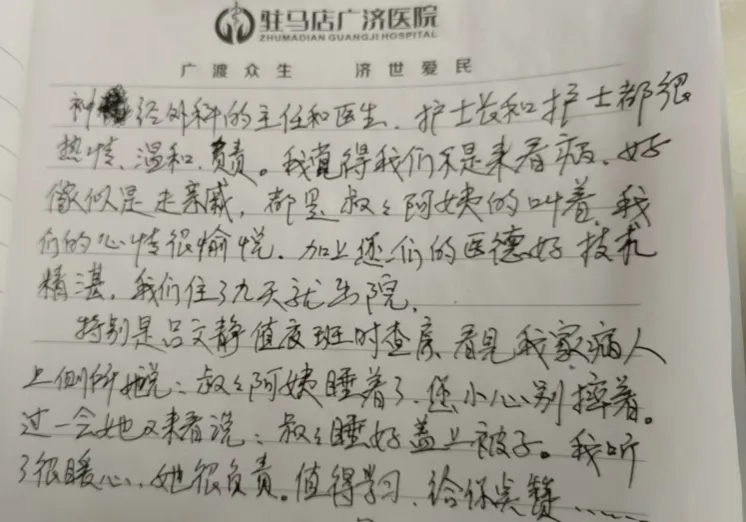 驻马店广济医院
ZHUMADIAN GUANGJI HOSPITAL
广渡众生 济世爱民
神经外科的主任和医生、护士长和护士都很
热情、温和、负责。我觉得我们不是来看病、好
像似是走亲戚,都是叔叔阿姨的叫着,我
们的心情很愉悦。加上您们的医德好技术
精湛,我们住了九天就出院,
特别是吕文静值夜班时查房,看见我家病人
上侧所她说:叔叔阿姨睡着了、您小心别摔着。
过一会她又来看说:叔叔睡好盖上被子。我听
了很暖心、她很负责。值得学习,给你点赞……